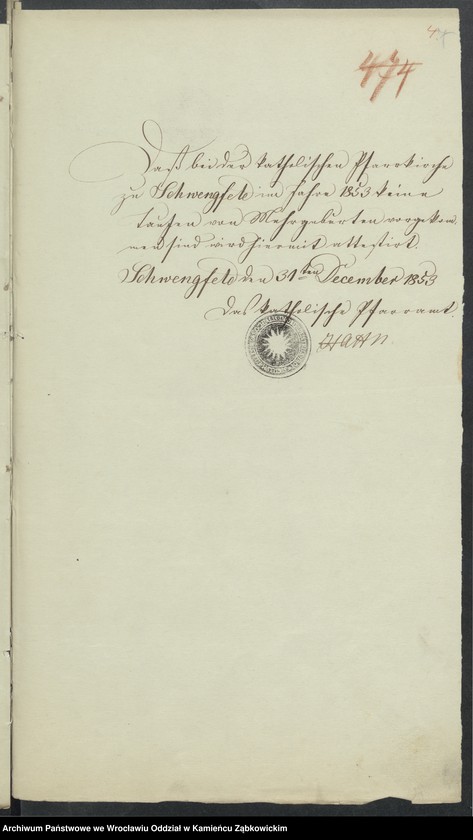 474
Daß bei der katholischen Pfarrkirche
zu Schwengfeld im Jahre 1853 keine
Taufen von Mehrgeburten vorgekom
men sind wird hiermit attestirt.
Schwengfeld den 31ten December 1853
Das katholische Pfarramt.
Archiwum Państwowe we Wrocławiu Oddział w Kamieńcu Ząbkowickim